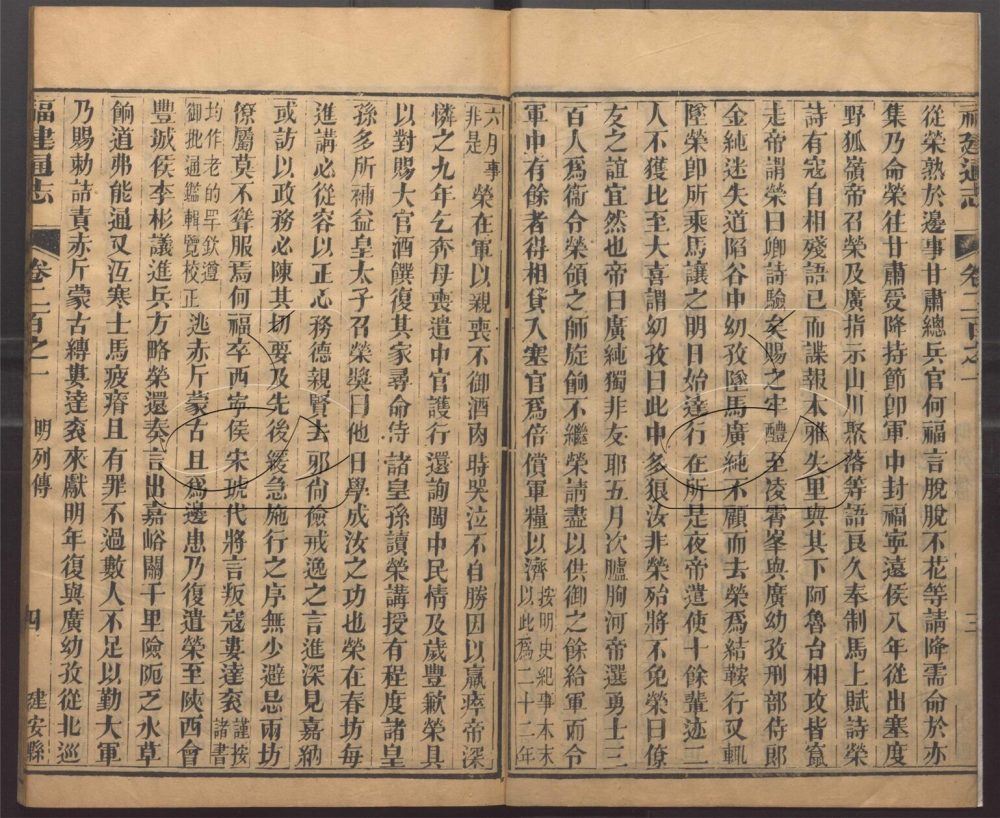 福建通志
卷二百之一
三
從榮熟於邊事甘肅總兵官何福言脫脫不花等請降需命於亦
集乃命榮往甘肅受降持節卽軍中封福寧遠侯八年從出塞度
野狐嶺帝召榮及廣指示山川聚落等語良久奉制馬上賦詩榮
詩有寇自相殘語已而諜報木雅失里與其下阿魯台相攻皆竄
走帝謂榮曰卿詩驗矣賜之牢醴至凌霄峯與廣幼孜刑部侍郎
金純迷失道陷谷中幼孜墜馬廣純不顧而去榮爲結鞍行又輒
墜榮卽所乘馬讓之明日始達行在所是夜帝遣使十餘輩迹二
人不獲比至大喜謂幼孜曰此中多狼汝非榮殆將不免榮曰僚
友之誼宜然也帝曰廣純獨非友耶五月次臚朐河帝選勇士三
百人爲衞令榮領之師旋餉不繼榮請盡以供御之餘給軍而令
軍中有餘者得相貸入塞官爲倍償軍糧以濟按明史紀事本末以此爲二十二年
六月事非是榮在軍以親喪不御酒肉時哭泣不自勝因以羸瘁帝深
憐之九年乞奔母喪遣中官護行還詢閩中民情及歲豐歉榮具
以對賜大官酒饌復其家尋命侍諸皇孫讀榮講授有程度諸皇
孫多所補益皇太子召榮獎曰他日學成汝之功也榮在春坊每
進講必從容以正心務德親賢去邪尙儉戒逸之言進深見嘉納
或訪以政務必陳其切要及先後緩急施行之序無少避忌兩坊
僚屬莫不聳服焉何福卒西寧侯宋琥代將言叛寇婁達袞謹按諸書
均作老的罕欽遵御批通鑑輯覽校正逃赤斤蒙古且爲邊患乃復遣榮至陝西會
豐城侯李彬議進兵方略榮還奏言出嘉峪關千里險阨乏水草
餉道弗能通又沍寒士馬疲瘠且有罪不過數人不足以勤大軍
乃賜勅詰責赤斤蒙古縛婁達袞來獻明年復與廣幼孜從北巡
福建通志
卷二百之一
明列傳
四
建安縣